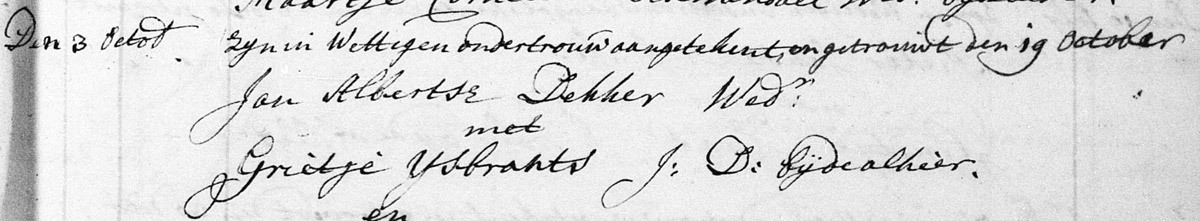 Maartje
Den 3 Octob. zyn in Wettigen ondertrouw aangetekent, en getrouwt den 19 October
Jan Albertsz Dekker Wedr.
met
Grietje Ysbrants J: D: byde alhier.
en